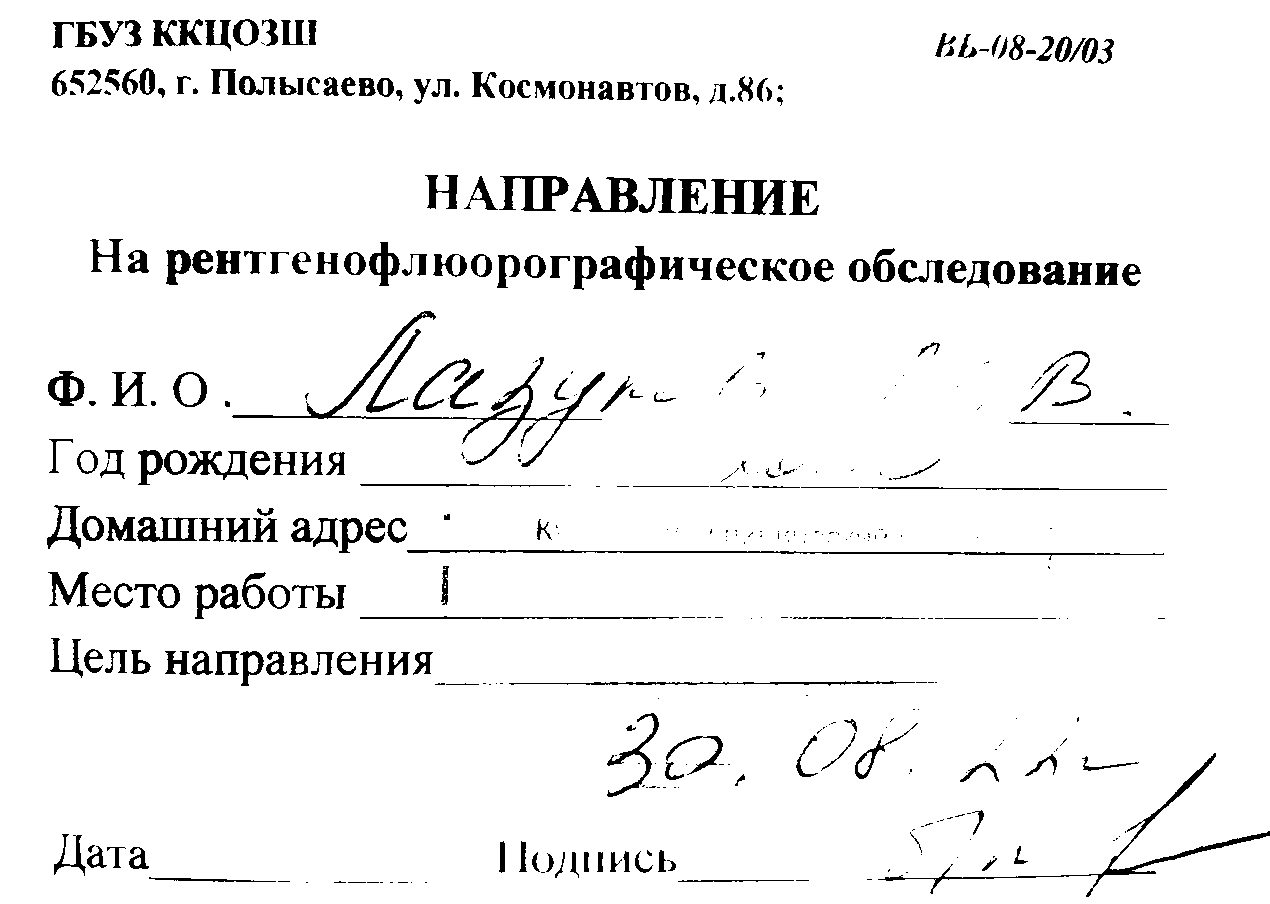 ГБУЗ ККЦОЗШ
ВБ-08-20/03
652560, г. Полысаево, ул. Космонавтов, д.86;
НАПРАВЛЕНИЕ
На рентгенофлюорографическое обследование
Ф. И. О. В.
Год рождения
Домашний адрес
Место работы
Цель направления
30.08.22г
Дата Подпись